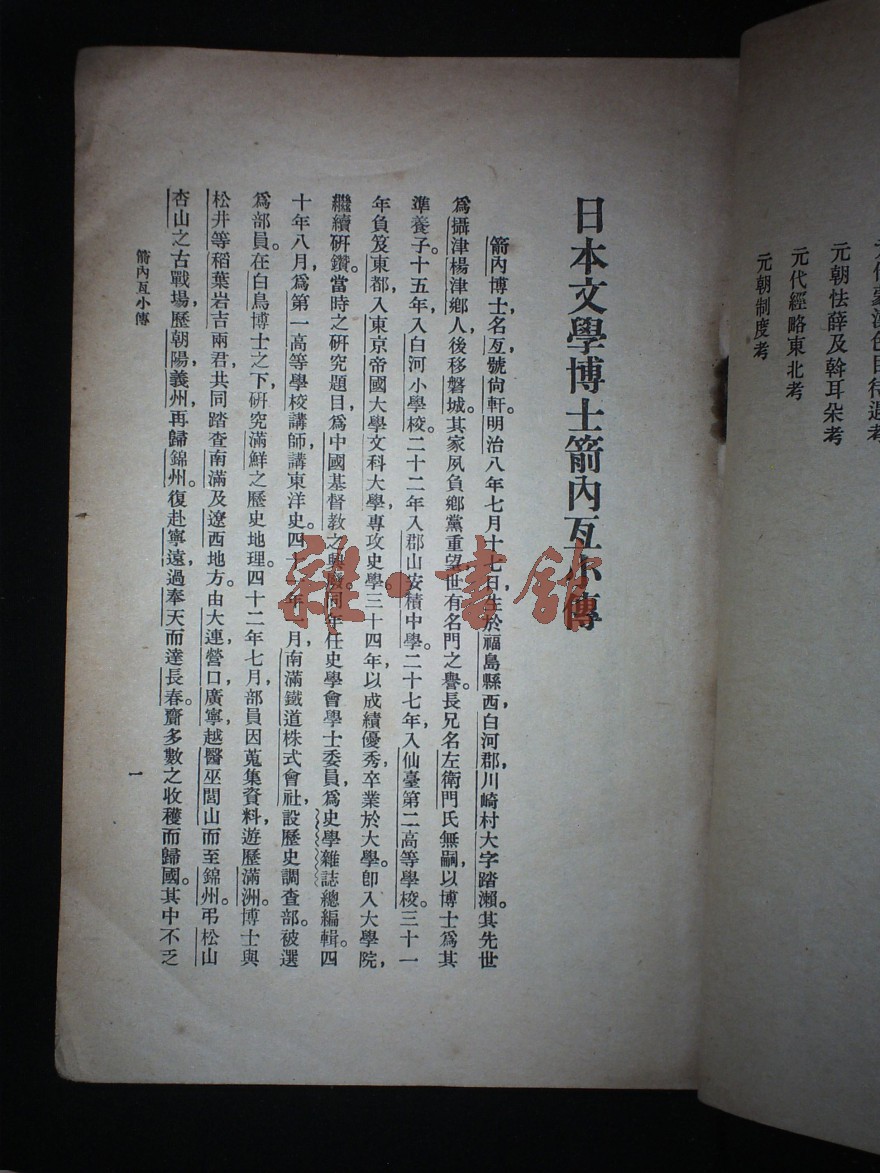 元朝怯薛及斡耳朵考
元代經略東北考
元朝制度考
日本文學博士箭內亙小傳
箭內博士，名亙，號尙軒。明治八年七月十七日，生於福島縣西白河郡，川崎村大字踏瀨。其先世
爲攝津楊津鄉人，後移磐城。其家夙負鄉黨重望，世有名門之譽。長兄名左衛門氏無嗣，以博士爲其
準養子。十五年，入白河小學校。二十二年入郡山安積中學。二十七年，入仙臺第二高等學校。三十一
年負笈東都，入東京帝國大學文科大學，專攻史學。三十四年以成績優秀，卒業於大學。卽入大學院，
繼續硏鑽。當時之硏究題目，爲中國基督敎之興廢。同年任史學會學士委員，爲史學雜誌總編輯。四
十年八月，爲第一高等學校講師，講東洋史。四十一年一月，南滿鐵道株式會社，設歷史調查部。被選
爲部員。在白鳥博士之下，硏究滿鮮之歷史地理。四十二年七月，部員因蒐集資料，遊歷滿洲。博士與
松井等稻葉岩吉兩君，共同踏查南滿及遼西地方。由大連營口，廣寧，越醫巫閭山而至錦州。弔松山
杏山之古戰場，歷朝陽，義州，再歸錦州。復赴寧遠，過奉天而達長春。齎多數之收穫而歸國。其中不乏
箭內亙小傳
一
雜·書館